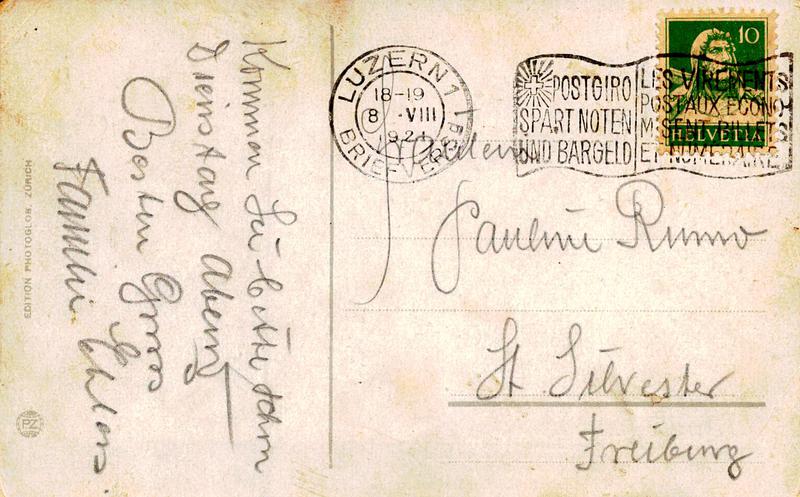 Kommen Sie bitte schon
Dienstag Abend
Besten Gruss
Familie
EDITION PHOTOGLOB, ZÜRICH
PZ
LUZERN 1
18-19
8 .VIII
1921
BRIEFVERS
POSTGIRO
SPART NOTEN
UND BARGELD
LES VIREMENTS
POSTAUX ECONO
MISENT BILLETS
ET NUMERAIRE
10
HELVETIA
Pauline Rumo
St Silvester
Freiburg